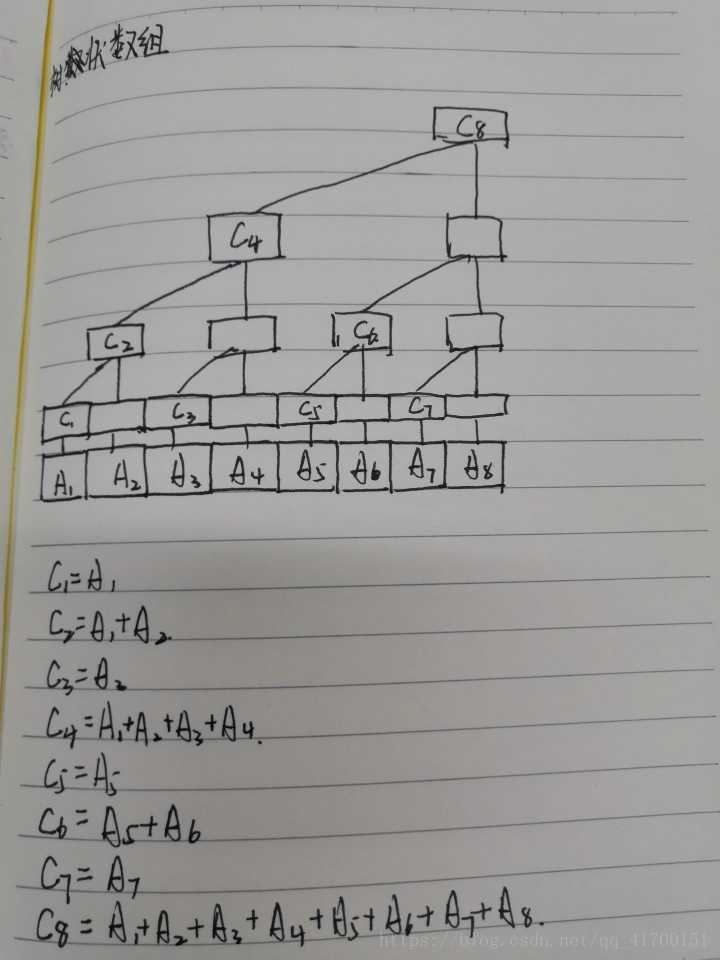 树状数组
C8
C4
C2 C6
C1 C3 C5 C7
A1 A2 A3 A4 A5 A6 A7 A8
C1=A1
C2=A1+A2
C3=A2
C4=A1+A2+A3+A4.
C5=A5
C6=A5+A6
C7=A7
C8=A1+A2+A3+A4+A5+A6+A7+A8.
https://blog.csdn.net/qq_41700151